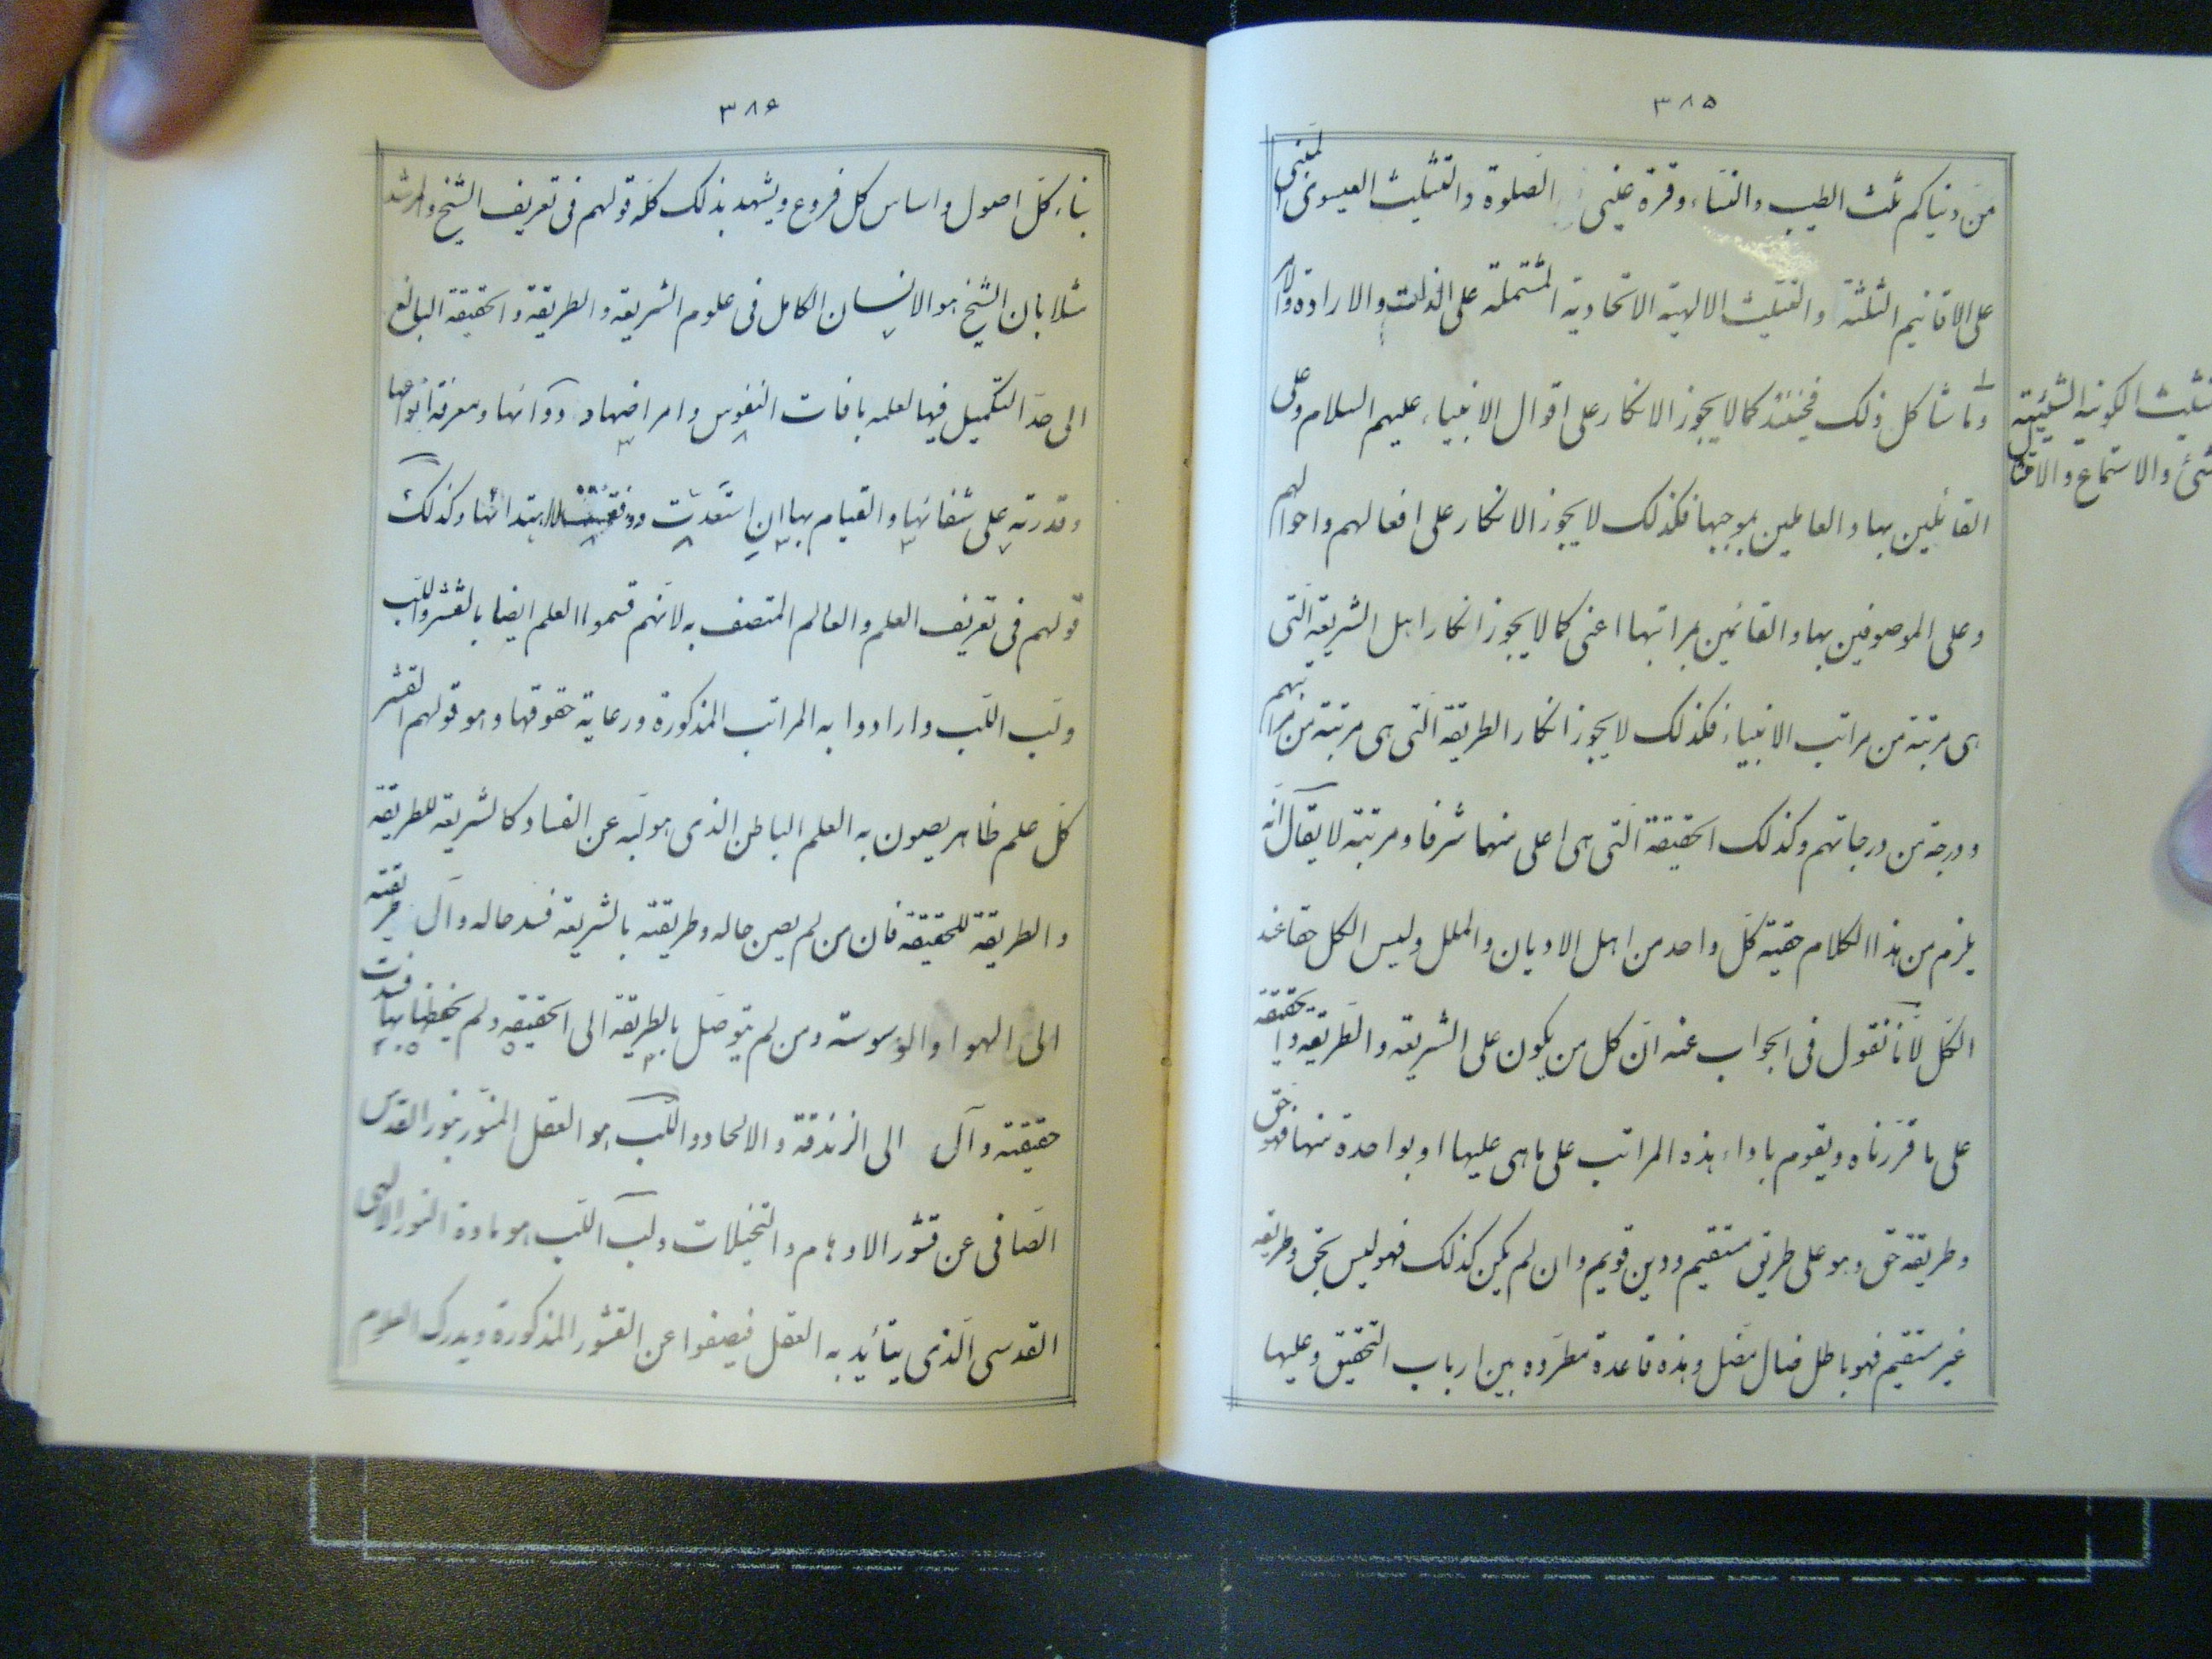 ٣٨٥
من دنياكم ثلث الطيب والنساء وقرة عيني الصلوة والتثليث العيسوى المبنى
على الاقانيم الثلثة والتثليث الالهية الاتحادية المشتملة على الذات والارادة والامر
وما شاكل ذلك فحينئذ كما لا يجوز الانكار على اقوال الانبياء عليهم السلام وعلى
القائلين بها والعاملين بموجبها فكذلك لا يجوز الانكار على افعالهم واحوالهم
وعلى الموصوفين بها والقائمين بمراتبها اعنى كما لا يجوز انكار اهل الشريعة التى
هى مرتبة من مراتب الانبياء فكذلك لا يجوز انكار الطريقة التى هى مرتبة من مراتبهم
ودرجة من درجاتهم وكذلك الحقيقة التى هى اعلى منهما شرفا ومرتبة لا يقال انّه
يلزم من هذا الكلام حقيّة كلّ واحد من اهل الاديان والملل وليس الكل حقا عند
الكلّ لانّا نقول فى الجواب عنه انّ كل من يكون على الشريعة والطريقة والحقيقة
على ما قرّرناه ويقوم باداء هذه المراتب على ما هى عليها او بواحدة منها فهو حق
وطريقة حق وهو على طريق مستقيم ودين قويم وان لم يكن كذلك فهو ليس بحق وطريقه
غير مستقيم فهو باطل ضال مضل وهذه قاعدة مطرّده بين ارباب التحقيق وعليها
الكونية
شئ والاستماع
٣٨۶
بناء كلّ اصول واساس كل فروع ويشهد بذلك كلّه قولهم فى تعريف الشيخ والمرشد
مثلا بان الشيخ هو الانسان الكامل فى علوم الشريعة والطريقة والحقيقة البالغ
الى حدّ التكميل فيها لعلمه بافات النفوس وامراضها وادوائها ومعرفة بدوائها
وقدرته على شفائها والقيام بها ان استعدّت ووفقت لاهتدائها وكذلك
قولهم فى تعريف العلم والعالم المتصف به لانّهم قسموا العلم ايضا بالقشر واللّب
ولبّ اللّب وارادوا به المراتب المذكورة ورعاية حقوقها وهو قولهم القشر
كلّ علم ظاهر يصون به العلم الباطن الذى هو لبّه عن الفساد كالشريعة للطريقة
والطريقة للحقيقة فان من لم يصن حاله وطريقته بالشريعة فسد حاله وآل طريقته
الى الهوا والوسوسة ومن لم يتوصّل بالطريقة الى الحقيقة ولم يحفظها بها فسدت
حقيقته وآل الى الزندقة والالحاد واللّب هو العقل المنوّر بنور القدس
الصّافى عن قشور الاوهام والتخيلات ولبّ اللّب هو مادة النور الالهى
القدسى الّذى يتأيد به العقل فيصفوا عن القشور المذكورة ويدرك العلوم